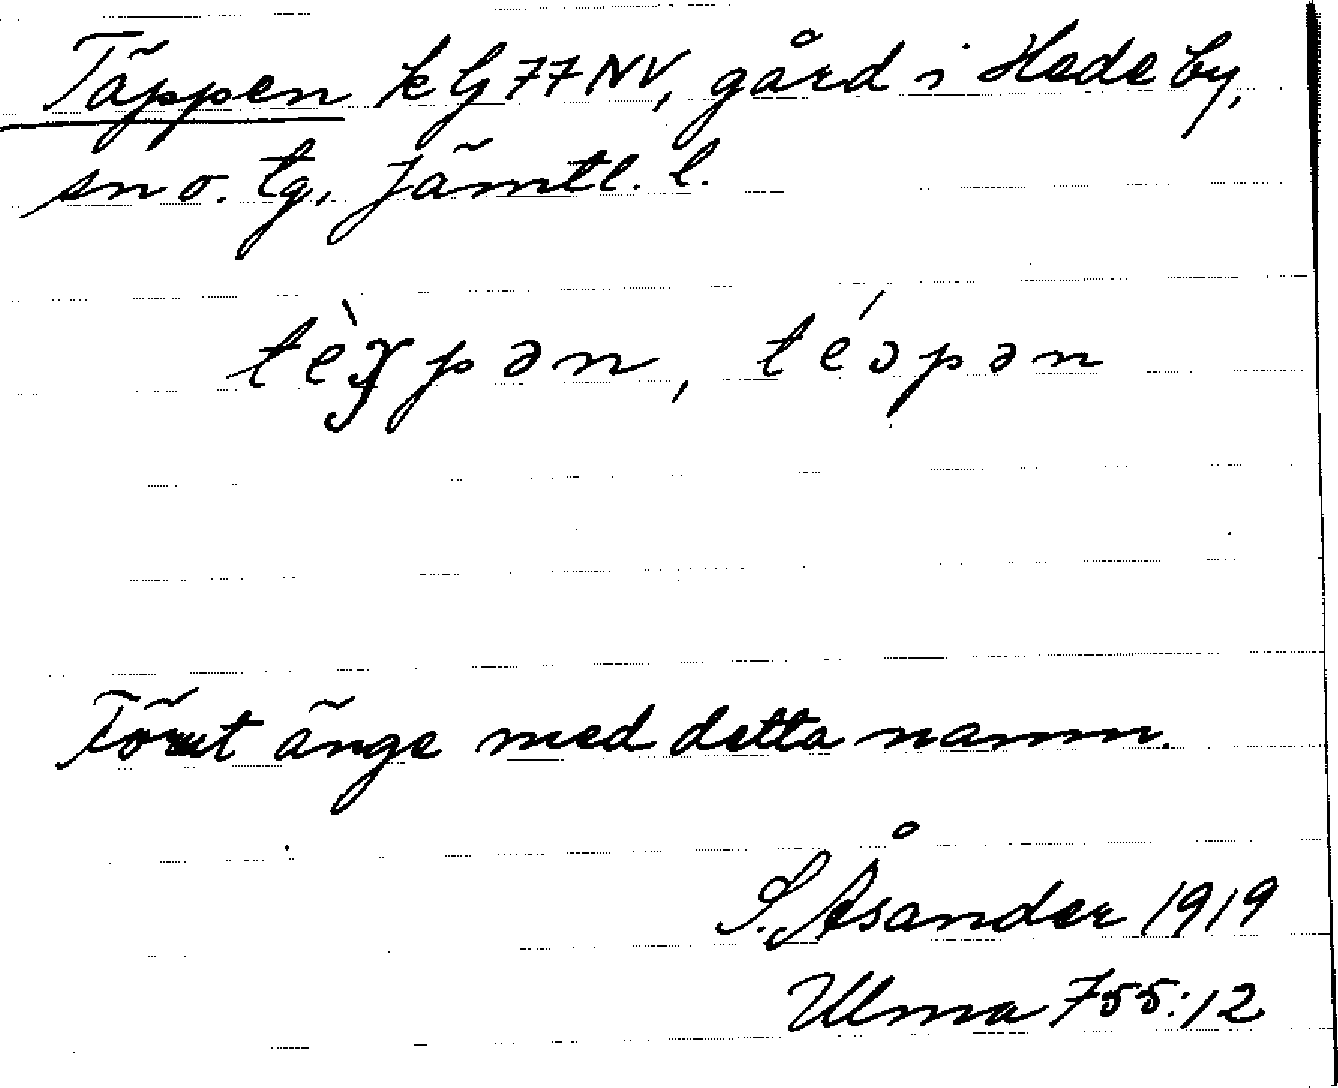 Täppen k G 77 NV, gård i Hede by,
sn o. tg, Jämtl. l.
tèɣpən, téəpən
Förut änge med detta namn.
S. Åsander 1919
Ulma 755:12